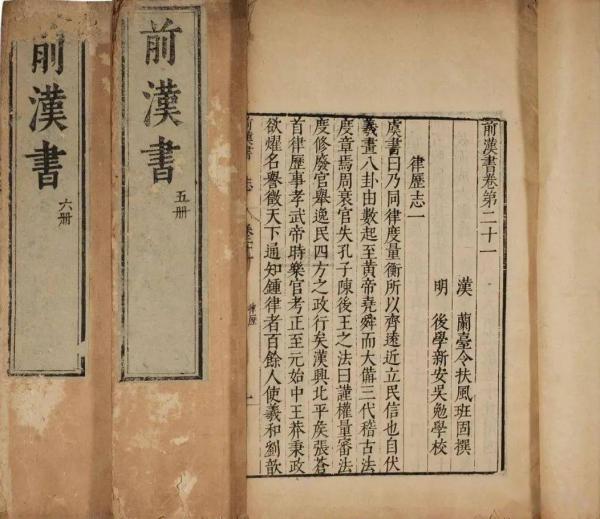 前漢書卷第二十一
漢 蘭臺令扶風班固撰
明 後學新安吳勉學校
律歷志一
虞書曰乃同律度量衡所以齊遠近立民信也自伏
羲畫八卦由數起至黃帝堯舜而大備三代稽古法
度章焉周衰官失孔子陳後王之法曰謹權量審法
度修廢官舉逸民四方之政行矣漢興北平侯張蒼
首律歷事孝武帝時樂官考正至元始中王莽秉政
欲燿名譽徵天下通知鍾律者百餘人使羲和劉歆
前漢書 志 一
前漢書
五册
前漢書
六册